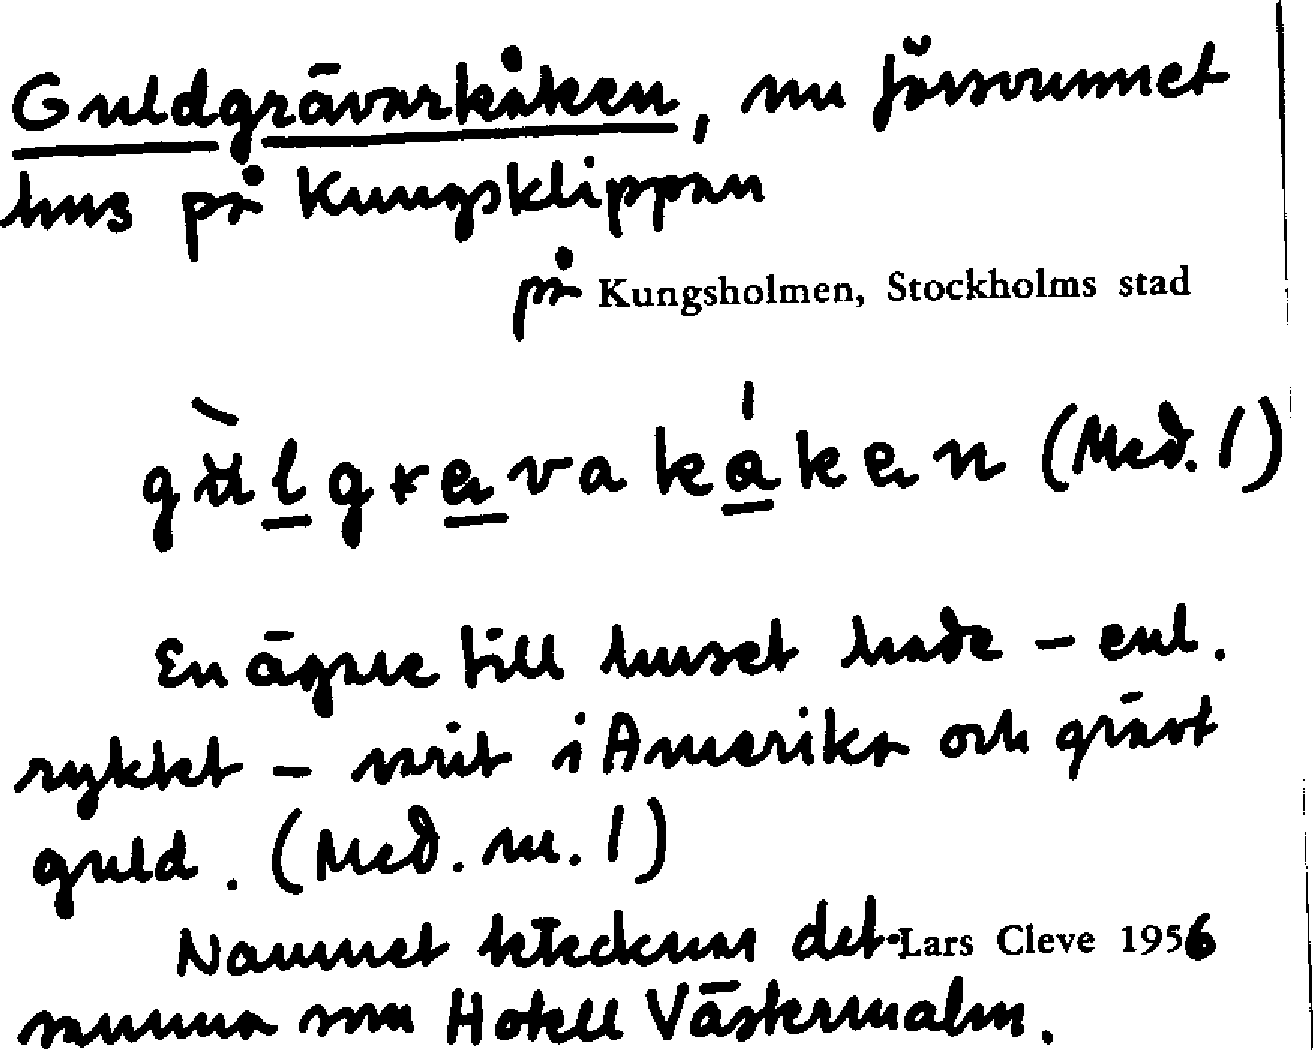 Guldgrävarkåken, nu försvunnet
hus på Kungsklippan
på Kungsholmen, Stockholms stad
gùlgrävakåken (Med. 1)
En ägare till huset hade – enl.
ryktet – varit i Amerika och grävt
guld. (Med. nr. 1)
Namnet betecknar det
Lars Cleve 1956
samma som Hotell Västermalm.